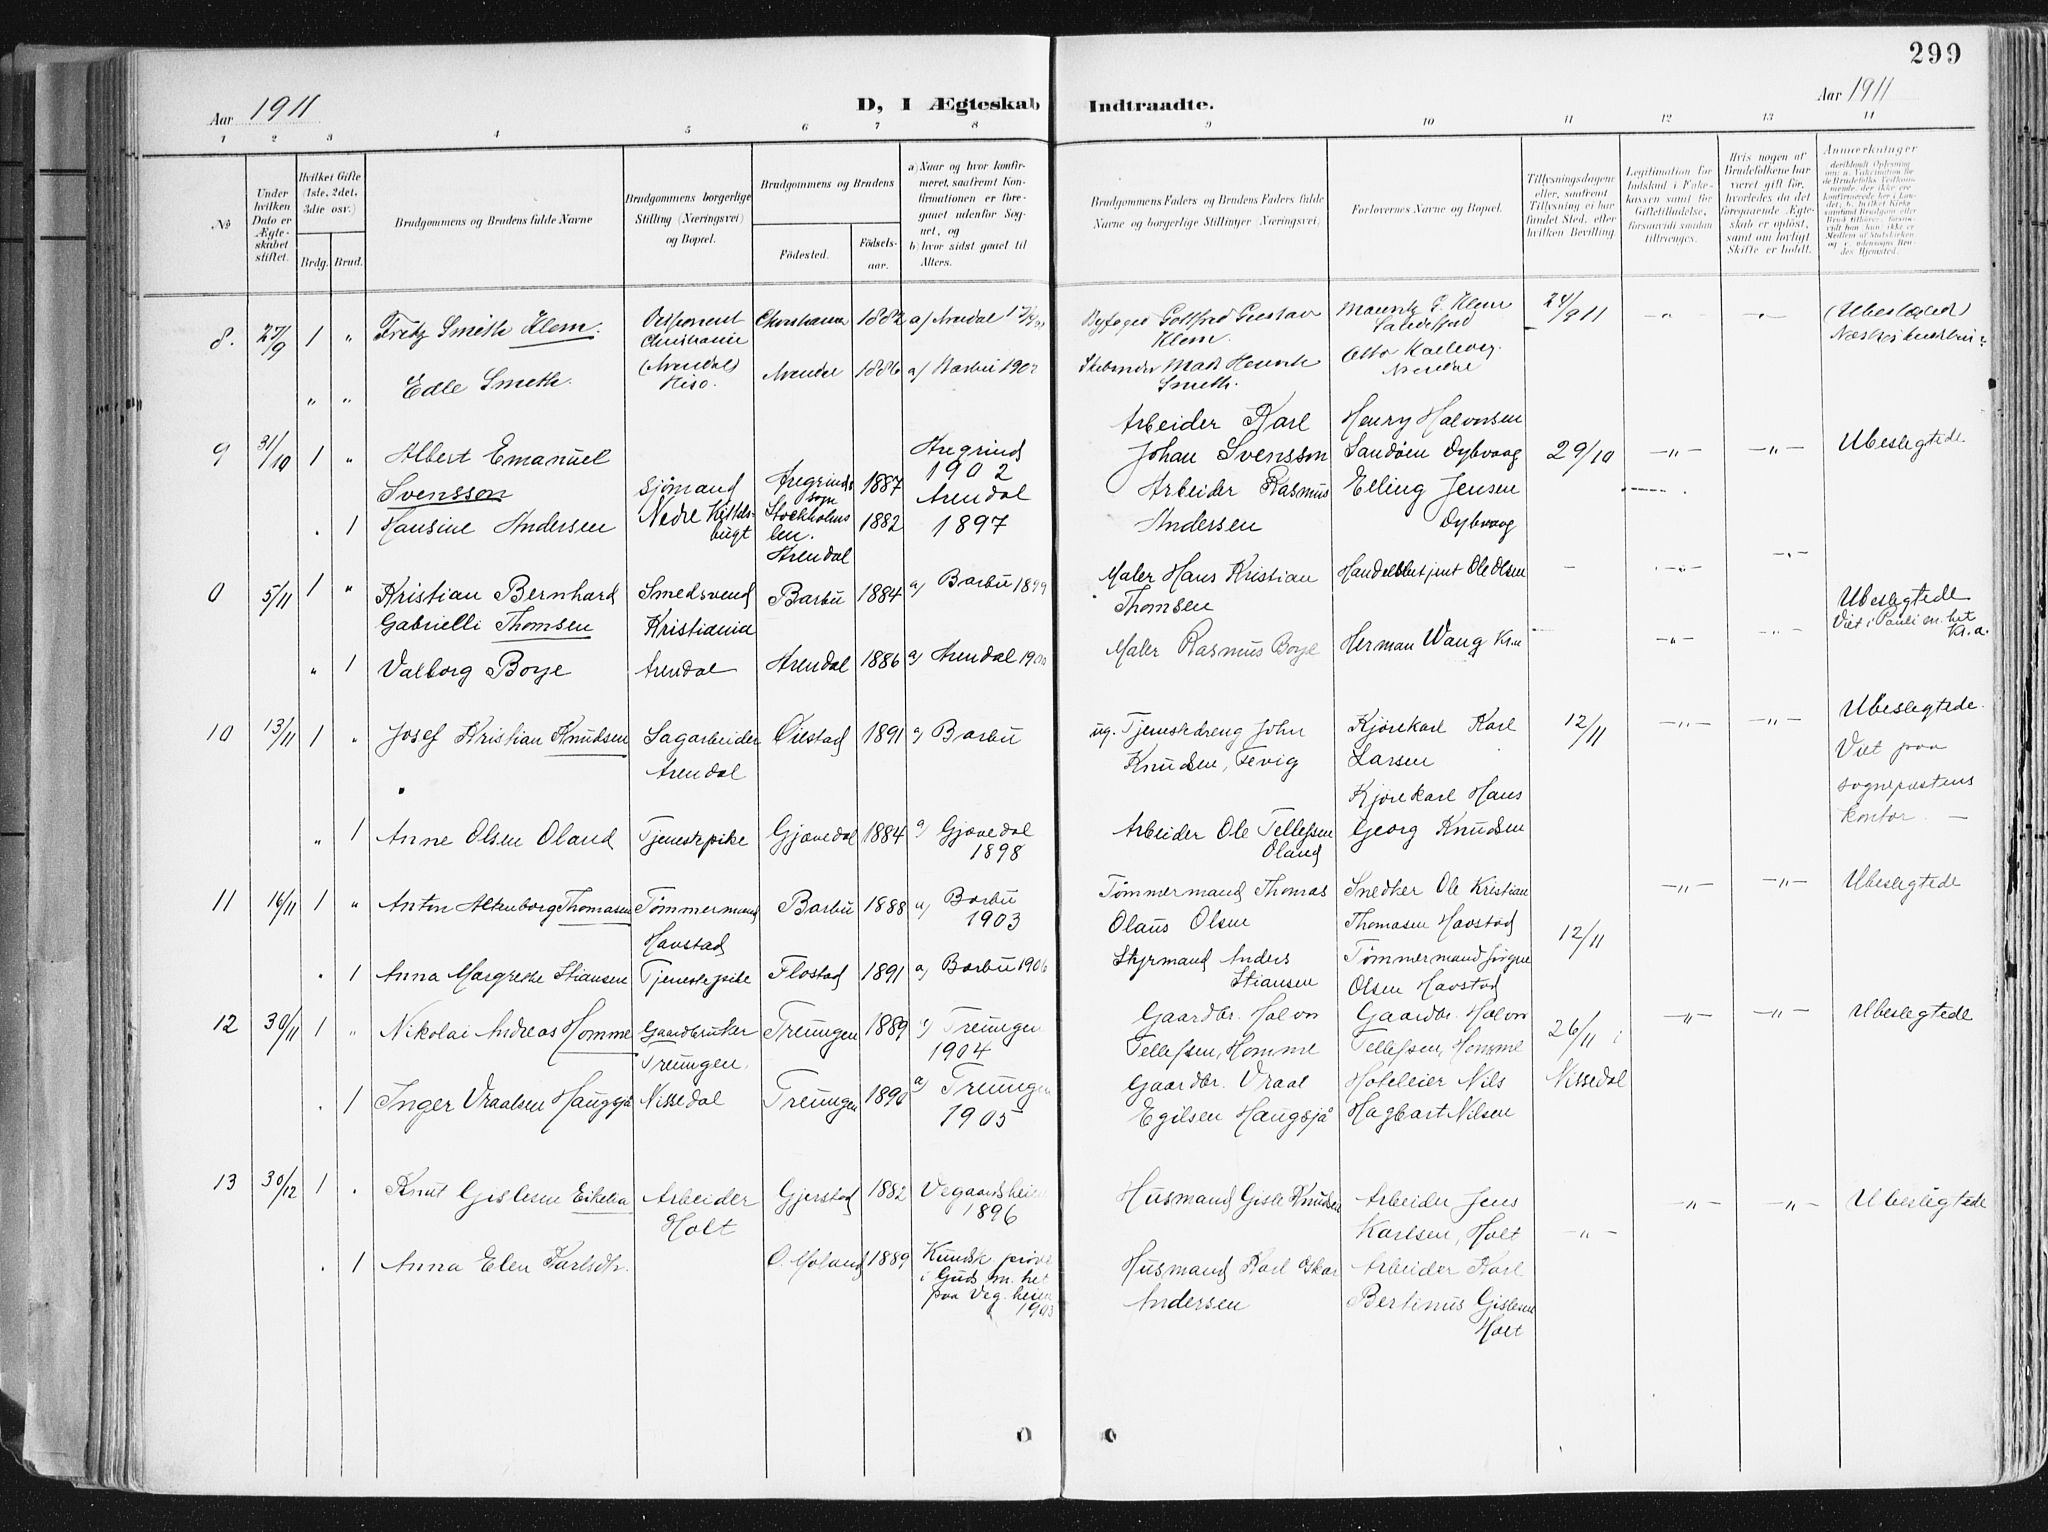 299
Aar 1911 D, I Ægteskab Indtraadte. Aar 1911
1 2 3 4 5 6 7 8 9 10 11 12 13 14
№
Under hvilken Dato er Ægteskabet stiftet.
Hvilket Gifte (1ste, 2det, 3die osv.)
Brdg. Brud.
Brudgommens og Brudens fulde Navne
Brudgommens borgerlige Stilling (Næringsvei) og Bopæl.
Brudgommens og Brudens
Födested. Födselsaar.
a) Naar og hvor konfirmeret, saafremt Konfirmationen er foregaaet udenfor Sognet, og
b) hvor sidst gaaet til Alters.
Brudgommens Faders og Brudens Faders fulde Navne og borgerlige Stillinger (Næringsvei)
Forlovernes Navne og Bopæl.
Tillysningsdagene eller, saafremt Tillysning ei har fundet Sted, efter hvilken Bevilling.
Legitimation for Indskud i Enkekassen samt for Giftetilladelse, forsaavidt saadan tiltrænges.
Hvis nogen af Brudefolkene har været gift før, hvorledes da det foregaaende Ægteskab er opløst, samt om lovligt Skifte er holdt.
Anmerkninger
8. 27/9 1 " Fritz Smith Klem. Christiania 1882 a) Arendal
Byfoged Gottfred Gustav Klem. 24/9 11 (Ubeslegted)
" " Edle Smith. (Arendal) Hisø. Arendal 1886 a) Barbu 1902
Smith. Otto Kallevig Arendal
9 31/10 1 " Albert Emanuel Svensson Sjømand Nedre Kittelsbugt 1887 1902
Arbeider Karl Johan Svensson Henry Halvorsen Sandøen Dybvaag 29/10 -"- -"- Ubeslegtede
. 1 Hansine Andersen Stockholms len. Arendal 1882 Arendal 1897
Arbeider Rasmus Andersen Elling Jensen Dybvaag
0 5/11 1 " Kristian Bernhard Gabrielli Thomsen Smedsvend Kristiania Barbu 1884 a) Barbu 1899
Maler Hans Kristian Thomsen Handelsbetjent Ole Olsen Ubeslegtede
Viet i Pauli m.het Kr.a.
" 1 Valborg Boye Arendal Arendal 1886 a) Arendal
Maler Rasmus Boye Herman Wang Kr.a -"- -"-
10 13/11 1 " Josef Kristian Knudsen Sagarbeider Arendal Øiestad 1891 a) Barbu
ug. Tjenestedreng John Knudsen, Fevig Kjørekarl Karl Larsen 12/11 -"- -"- Ubeslegtede.
Viet paa sognepræstens kontor. —
" 1 Anne Olsen Oland Tjenestepike Gjøvedal 1884 a) Gjøvedal 1898
Arbeider Ole Tellefsen Oland Kjørekarl Hans Georg Knudsen
11 16/11 1 " Anton Altenborg Thomasen Tømmermand Havstad Barbu 1888 a) Barbu 1903
Tømmermand Thomas Olaus Olsen Snedker Ole Kristian Thomasen Havstad 12/11 -"- -"- Ubeslegtede
. 1 Anna Margrethe Stiansen Tjenestepike Flostad 1891 a) Barbu 1906
Styrmand Anders Stiansen Tømmermand Jørgen Olsen Havstad
12 30/11 1 " Nikolai Andreas Homme Gaardbruker Treungen. Treungen 1889 a) Treungen 1904
Gaardbr. Halvor Tellefsen, Homme Gaardbr. Halvor Tellefsen, Homme 26/11 i Nissedal -"- -"- Ubeslegtede
. 1 Inger Vraalsen Haugsjå Nissedal Treungen 1890 a) Treungen 1905
Gaardbr. Vraal Egilsen Haugsjå Hoteleier Nils Hagbart Nilsen
13 30/12 1 . Knut Gislesen Eikelia Arbeider Holt Gjerstad 1882 Vegaardsheien 1896
Husmand Gisle Knudsen Arbeider Jens Karlsen, Holt -"- -"- -"- Ubeslegtede
. 1 Anna Elen Karlsdtr. Ø. Moland 1889 Kundsk. prøve i Guds m.het paa Veg.heien
Husmand Karl Oskar Andersen Arbeider Karl Bertinus Gislesen Holt